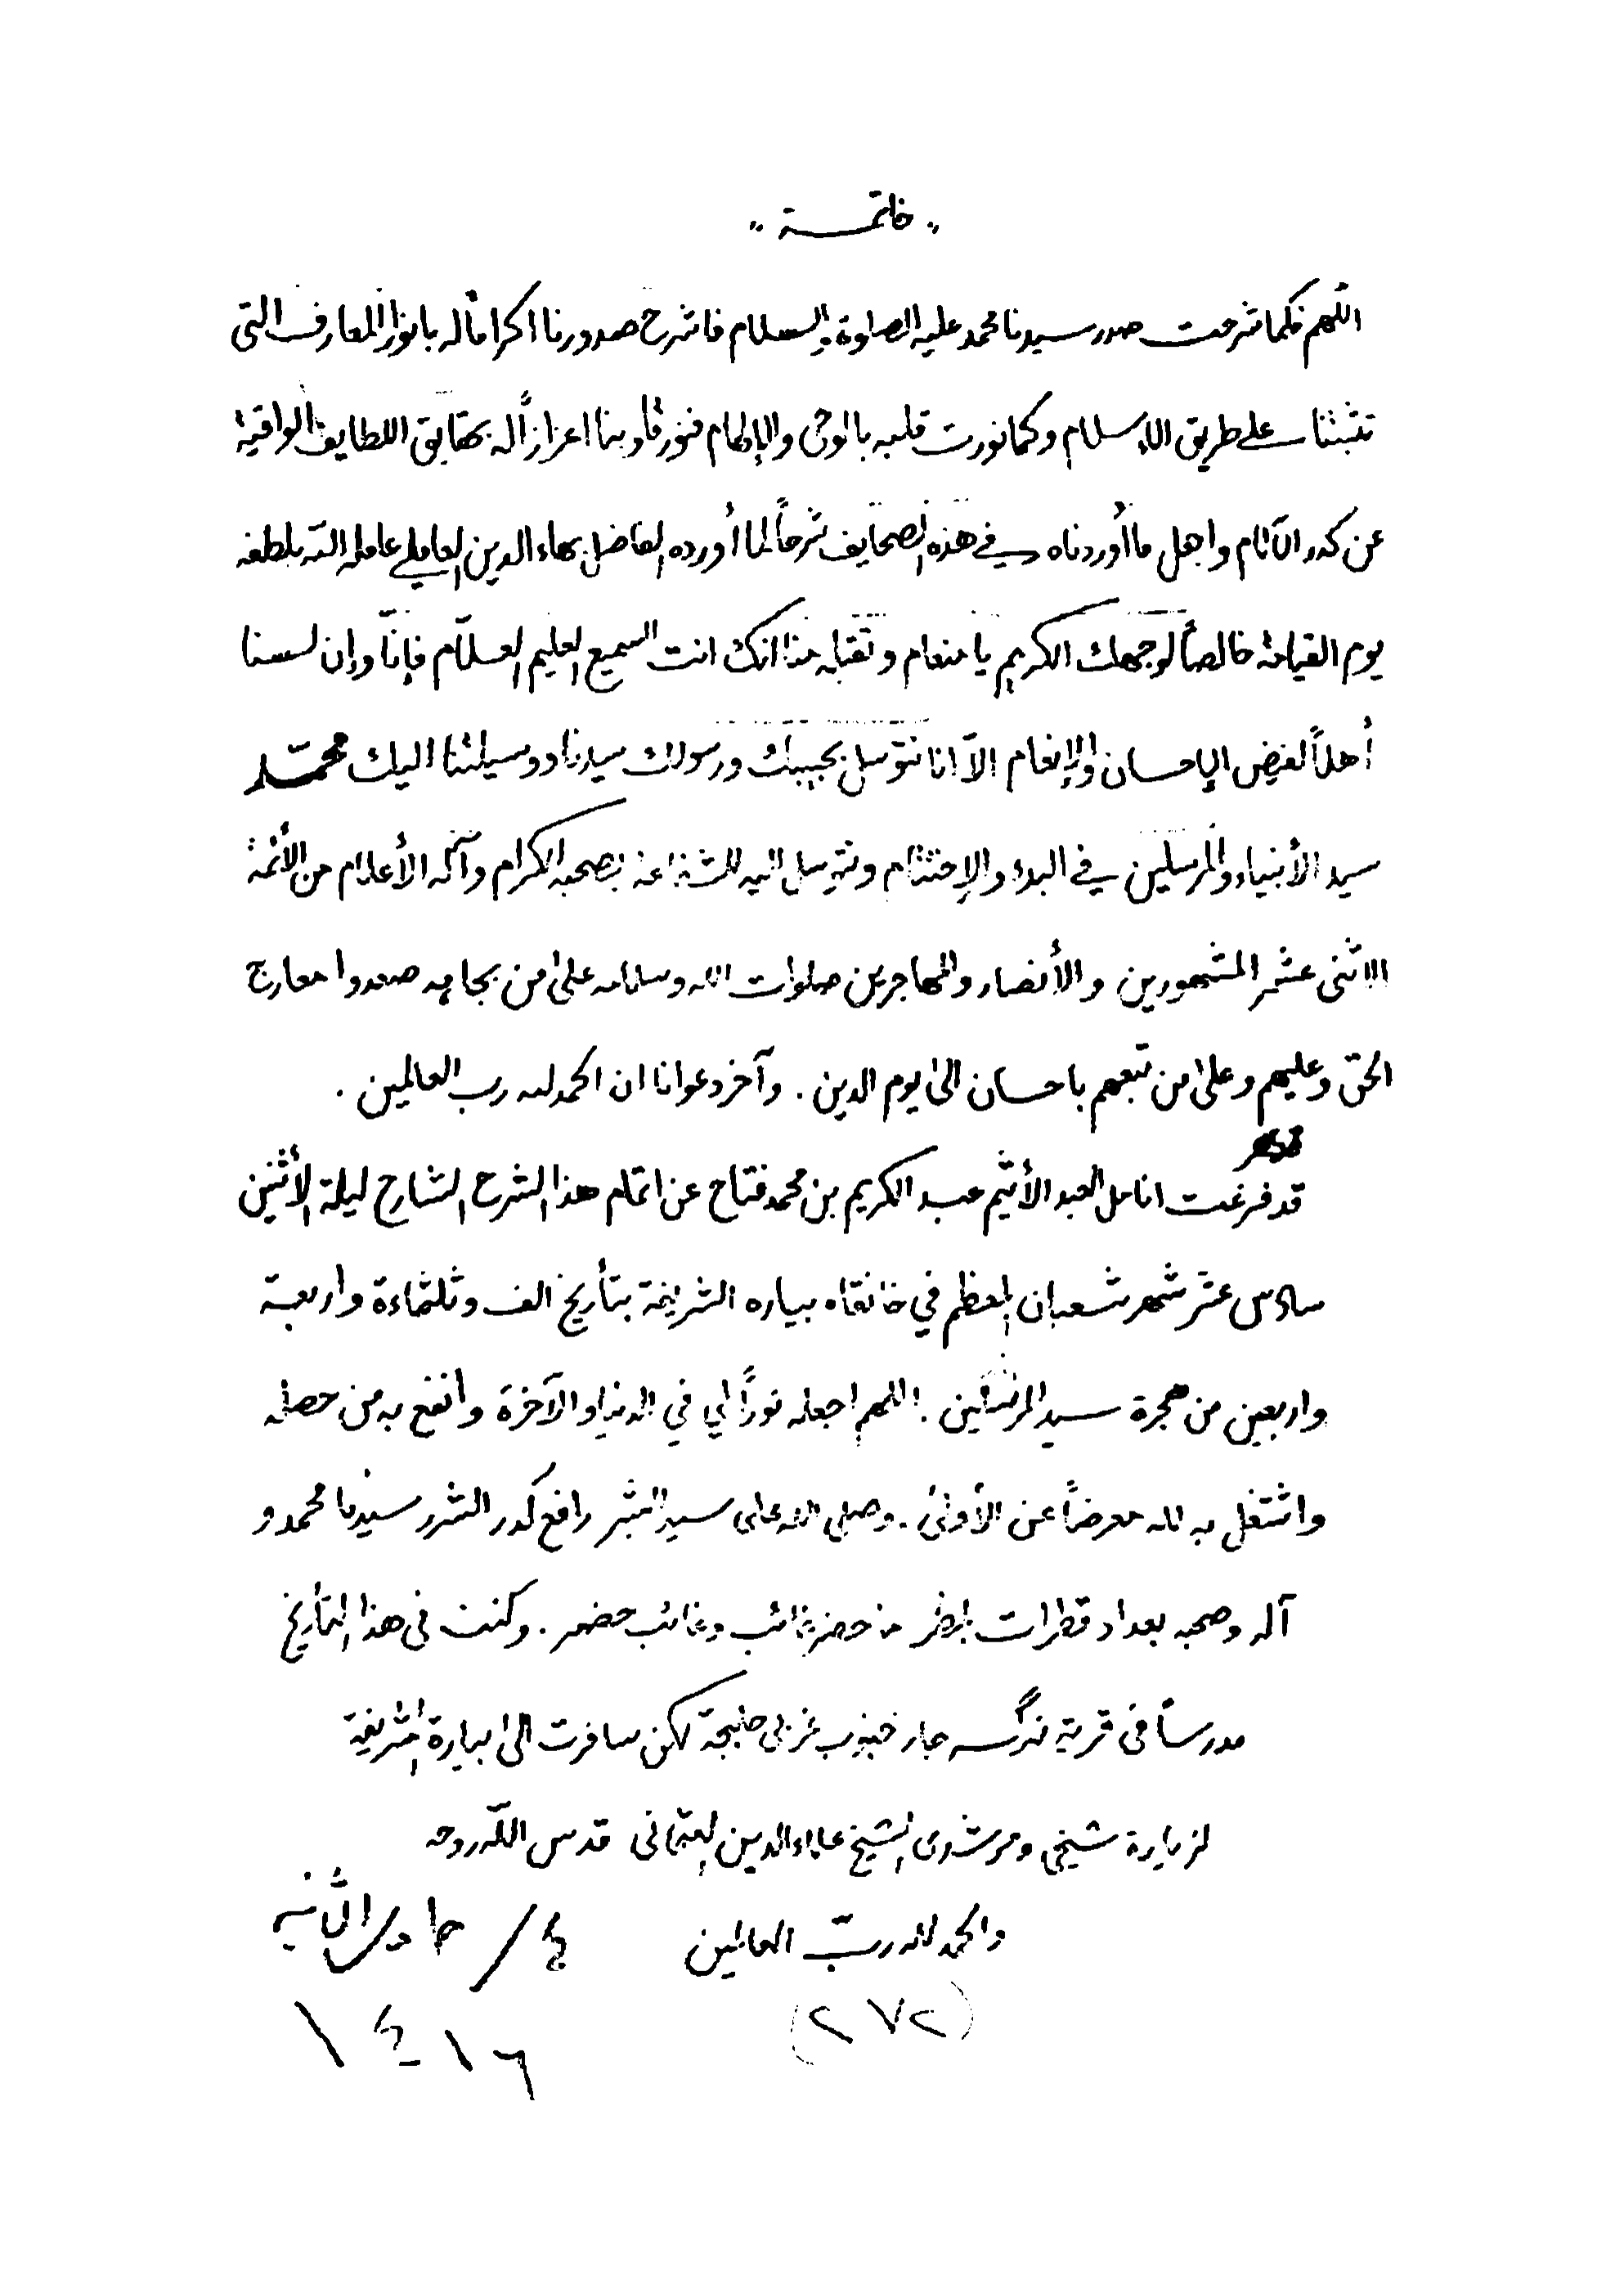 " خاتمـــة "
اللهم فكما شرحت صدر سيدنا محمد عليه الصلوة والسلام فاشرح صدورنا اكراماً له بانوار المعارف التى
تثبتنا على طريق الاسلام وكما نورت قلبه بالوحى والإلهام فنور قلوبنا اعزازاً له بحقايق اللطايف الواقية
عن كدر الآثام واجعل ما أوردناه في هذه الصحايف شرحاً لما أورده الفاضل بهاء الدين العاملي عامله الله بلطفه
يوم القيامة خالصاً لوجهك الكريم يا منعام وتقبله منا انك انت السميع العليم العلّام فإنّا وإن لسنا
أهلاً لفيض الإحسان والإنعام الاّ انا نتوسل بحبيبك ورسولك سيدنا ووسيلتنا اليك محمّد
سيد الأنبياء والمرسلين في البدء والإختتام ونتوسل اليه للشفاعة بصحبه الكرام وآله الأعلام من الأئمة
الاثنى عشر المشهورين والأنصار والمهاجرين صلوات الله وسلامه على من بجاهه صعدوا معارج
الحق وعليهم وعلى من تبعهم باحسان الى يوم الدين . وآخر دعوانا ان الحمد لله رب العالمين .
قد فرغت انامل العبد الأثيم عبد الكريم بن محمد فتاح عن اتمام هذا الشرح الشارح ليلة الأثنين
سادس عشر شهر شعبان المعظم في خانقاه بياره الشريفة بتأريخ الف وثلثماءة واربعة
واربعين من هجرة سيد المرسلين . اللهم اجعله نوراً لي في الدنيا والآخرة وانفع به من حصله
واشتغل به لله معرضاً عن الأولى . وصلى الله على سيد البشر رافع كدر الشرر سيدنا محمد و
آله وصحبه بعداد قطرات المطر ما حضر غائب وغائب حضر . وكنت فى هذا التأريخ
مدرساً فى قرية نرگسه جار جنوب غربى حلبجة لكن سافرت الى بيارة الشريفة
لزيارة شيخي ومرشدى الشيخ علاء الدين العثمانى قدس اللّه روحه
والحمد لله ربّ العالمين ٤ / جمادى الثانيه
(٢٧٢) ١٤١٦